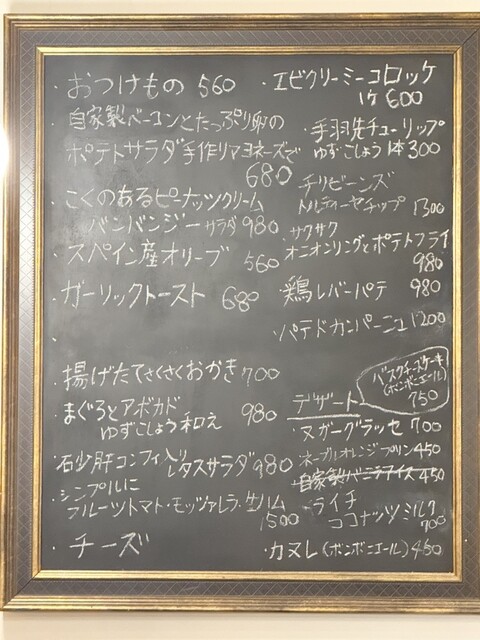 ・おつけもの 560
・自家製ベーコンとたっぷり卵の
ポテトサラダ手作りマヨネーズで
680
・こくのあるピーナッツクリーム
バンバンジーサラダ 980
・スペイン産オリーブ 560
・ガーリックトースト 680
・
・揚げたてさくさくおかき 700
・まぐろとアボカド
ゆずこしょう和え 980
・石少肝コンフィ入り
レタスサラダ 980
・シンプルに
フルーツトマト・モッツァレラ・生ハム
1500
・チーズ
・エビクリーミーコロッケ
1ケ 600
・手羽先チューリップ
ゆずこしょう 1本 300
・チリビーンズ
トルティーヤチップ 1300
・サクサク
オニオンリングとポテトフライ
980
・鶏レバーパテ 980
・パテドカンパーニュ 1200
バスクチーズケーキ
(ボンボニエール)
750
デザート
・ヌガーグラッセ 700
・ネーブルオレンジプリン 450
・自家製バニラアイス 450
・ライチ
ココナッツミルク
700
・カヌレ(ボンボニエール) 450